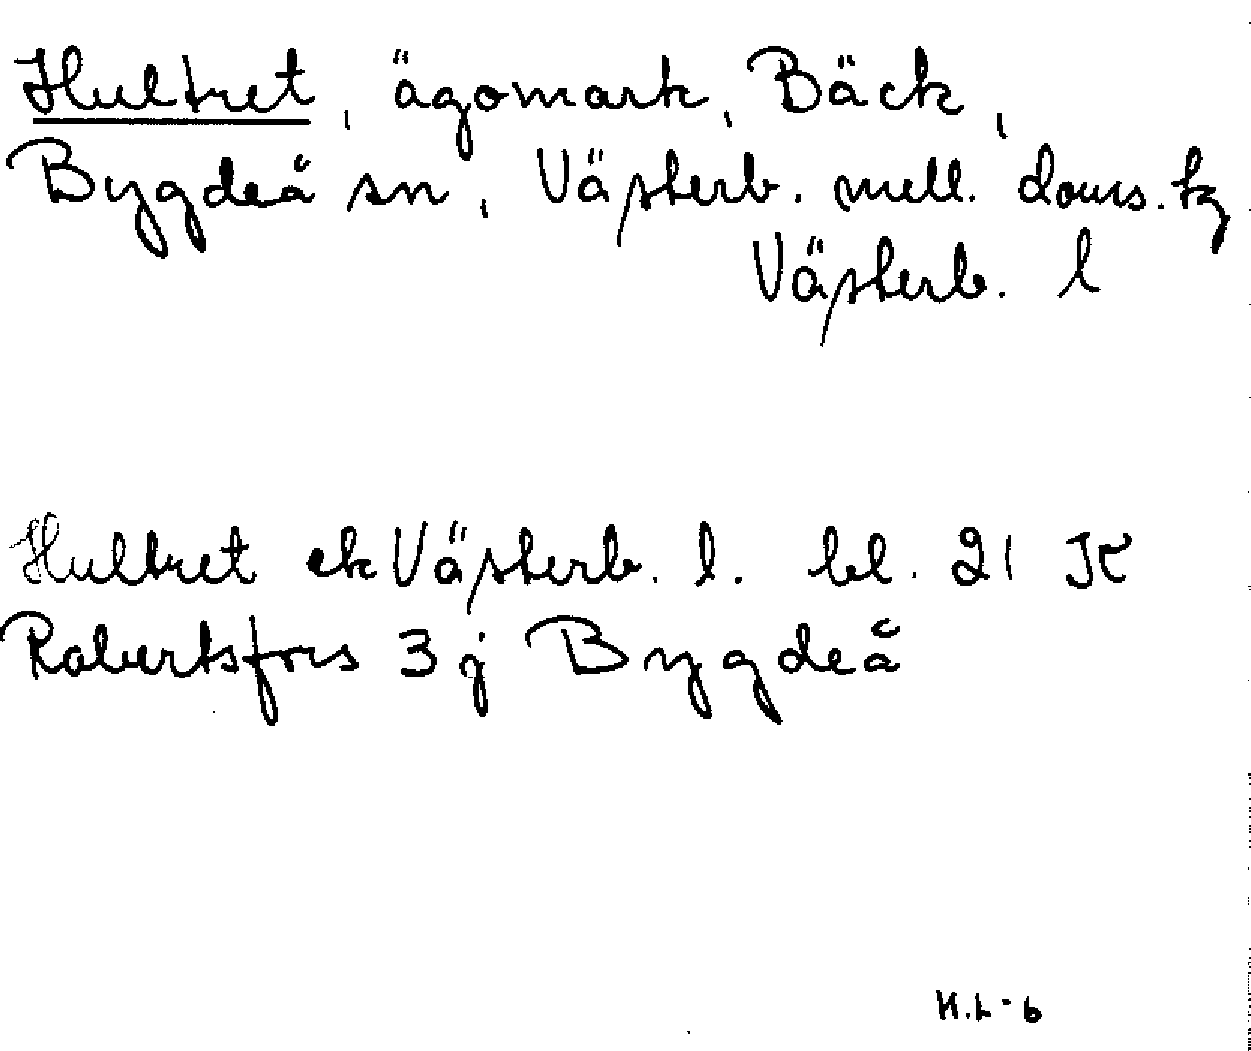 Hultret, ägomark, Bäck,
Bygdeå sn, Västerb. mell. doms. tg
Västerb. l
Hultret ek Västerb. l. bl. 21 K
Robertsfors 3 j Bygdeå
H.L-b